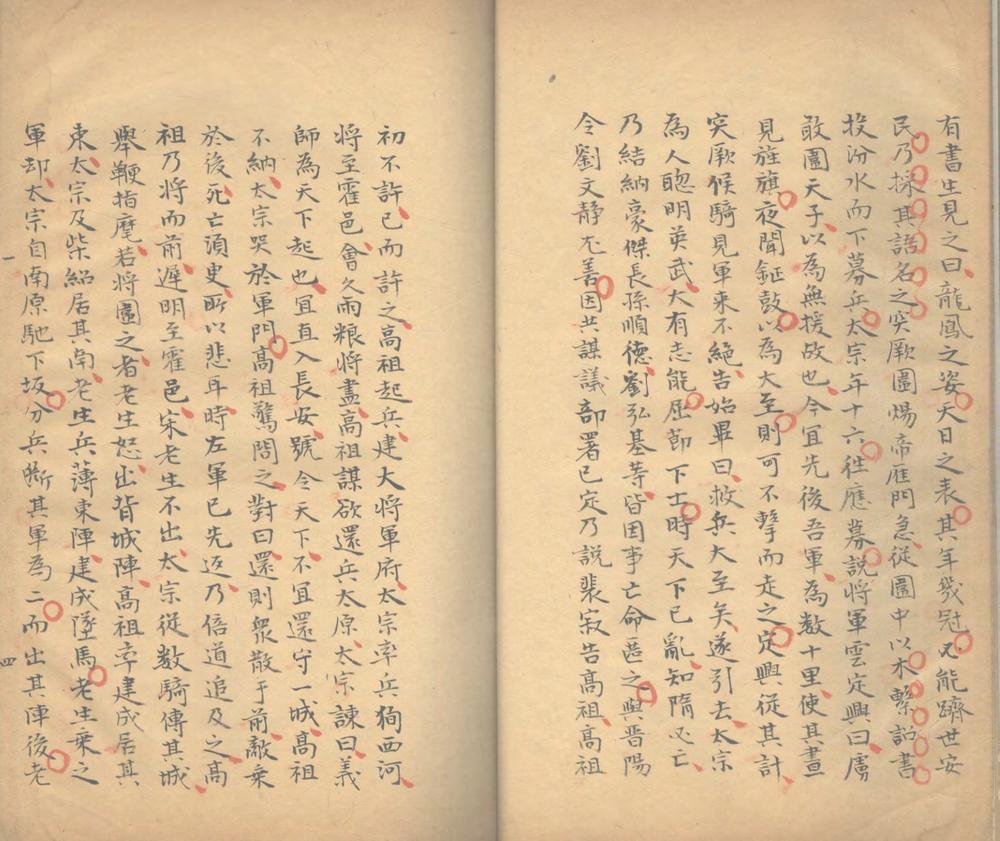 有書生見之曰龍鳳之姿天日之表其年幾冠必能躋世安
民乃採其語名之突厥圍煬帝雁門急從圍中以木繫詔書
投汾水而下募兵太宗年十六往應募說將軍雲定興曰虜
敢圍天子以為無援故也今宜先後吾軍為數十里使其晝
見旌旗夜聞鉦鼓以為大至則可不擊而走之定興從其計
突厥候騎見軍來不絕告始畢曰救兵大至矣遂引去太宗
為人聰明英武大有志能屈節下士時天下已亂知隋必亡
乃結納豪傑長孫順德劉弘基等皆因事亡命匿之與晉陽
令劉文靜尤善因共謀議部署已定乃說裴寂告高祖高祖
初不許已而許之高祖起兵建大將軍府太宗率兵狥西河
將至霍邑會久雨粮將盡高祖謀欲還兵太原太宗諫曰義
師為天下起也宜直入長安號令天下不宜還守一城高祖
不納太宗哭於軍門高祖驚問之對曰還則衆散于前敵乘
於後死亡須臾所以悲耳時左軍已先返乃倍道追及之高
祖乃將而前遲明至霍邑宋老生不出太宗從數騎傅其城
舉鞭指麾若將圍之者老生怒出背城陣高祖率建成居其
東太宗及柴紹居其南老生兵薄東陣建成墜馬老生乘之
軍却太宗自南原馳下坂分兵斷其軍為二而出其陣後老
一
四